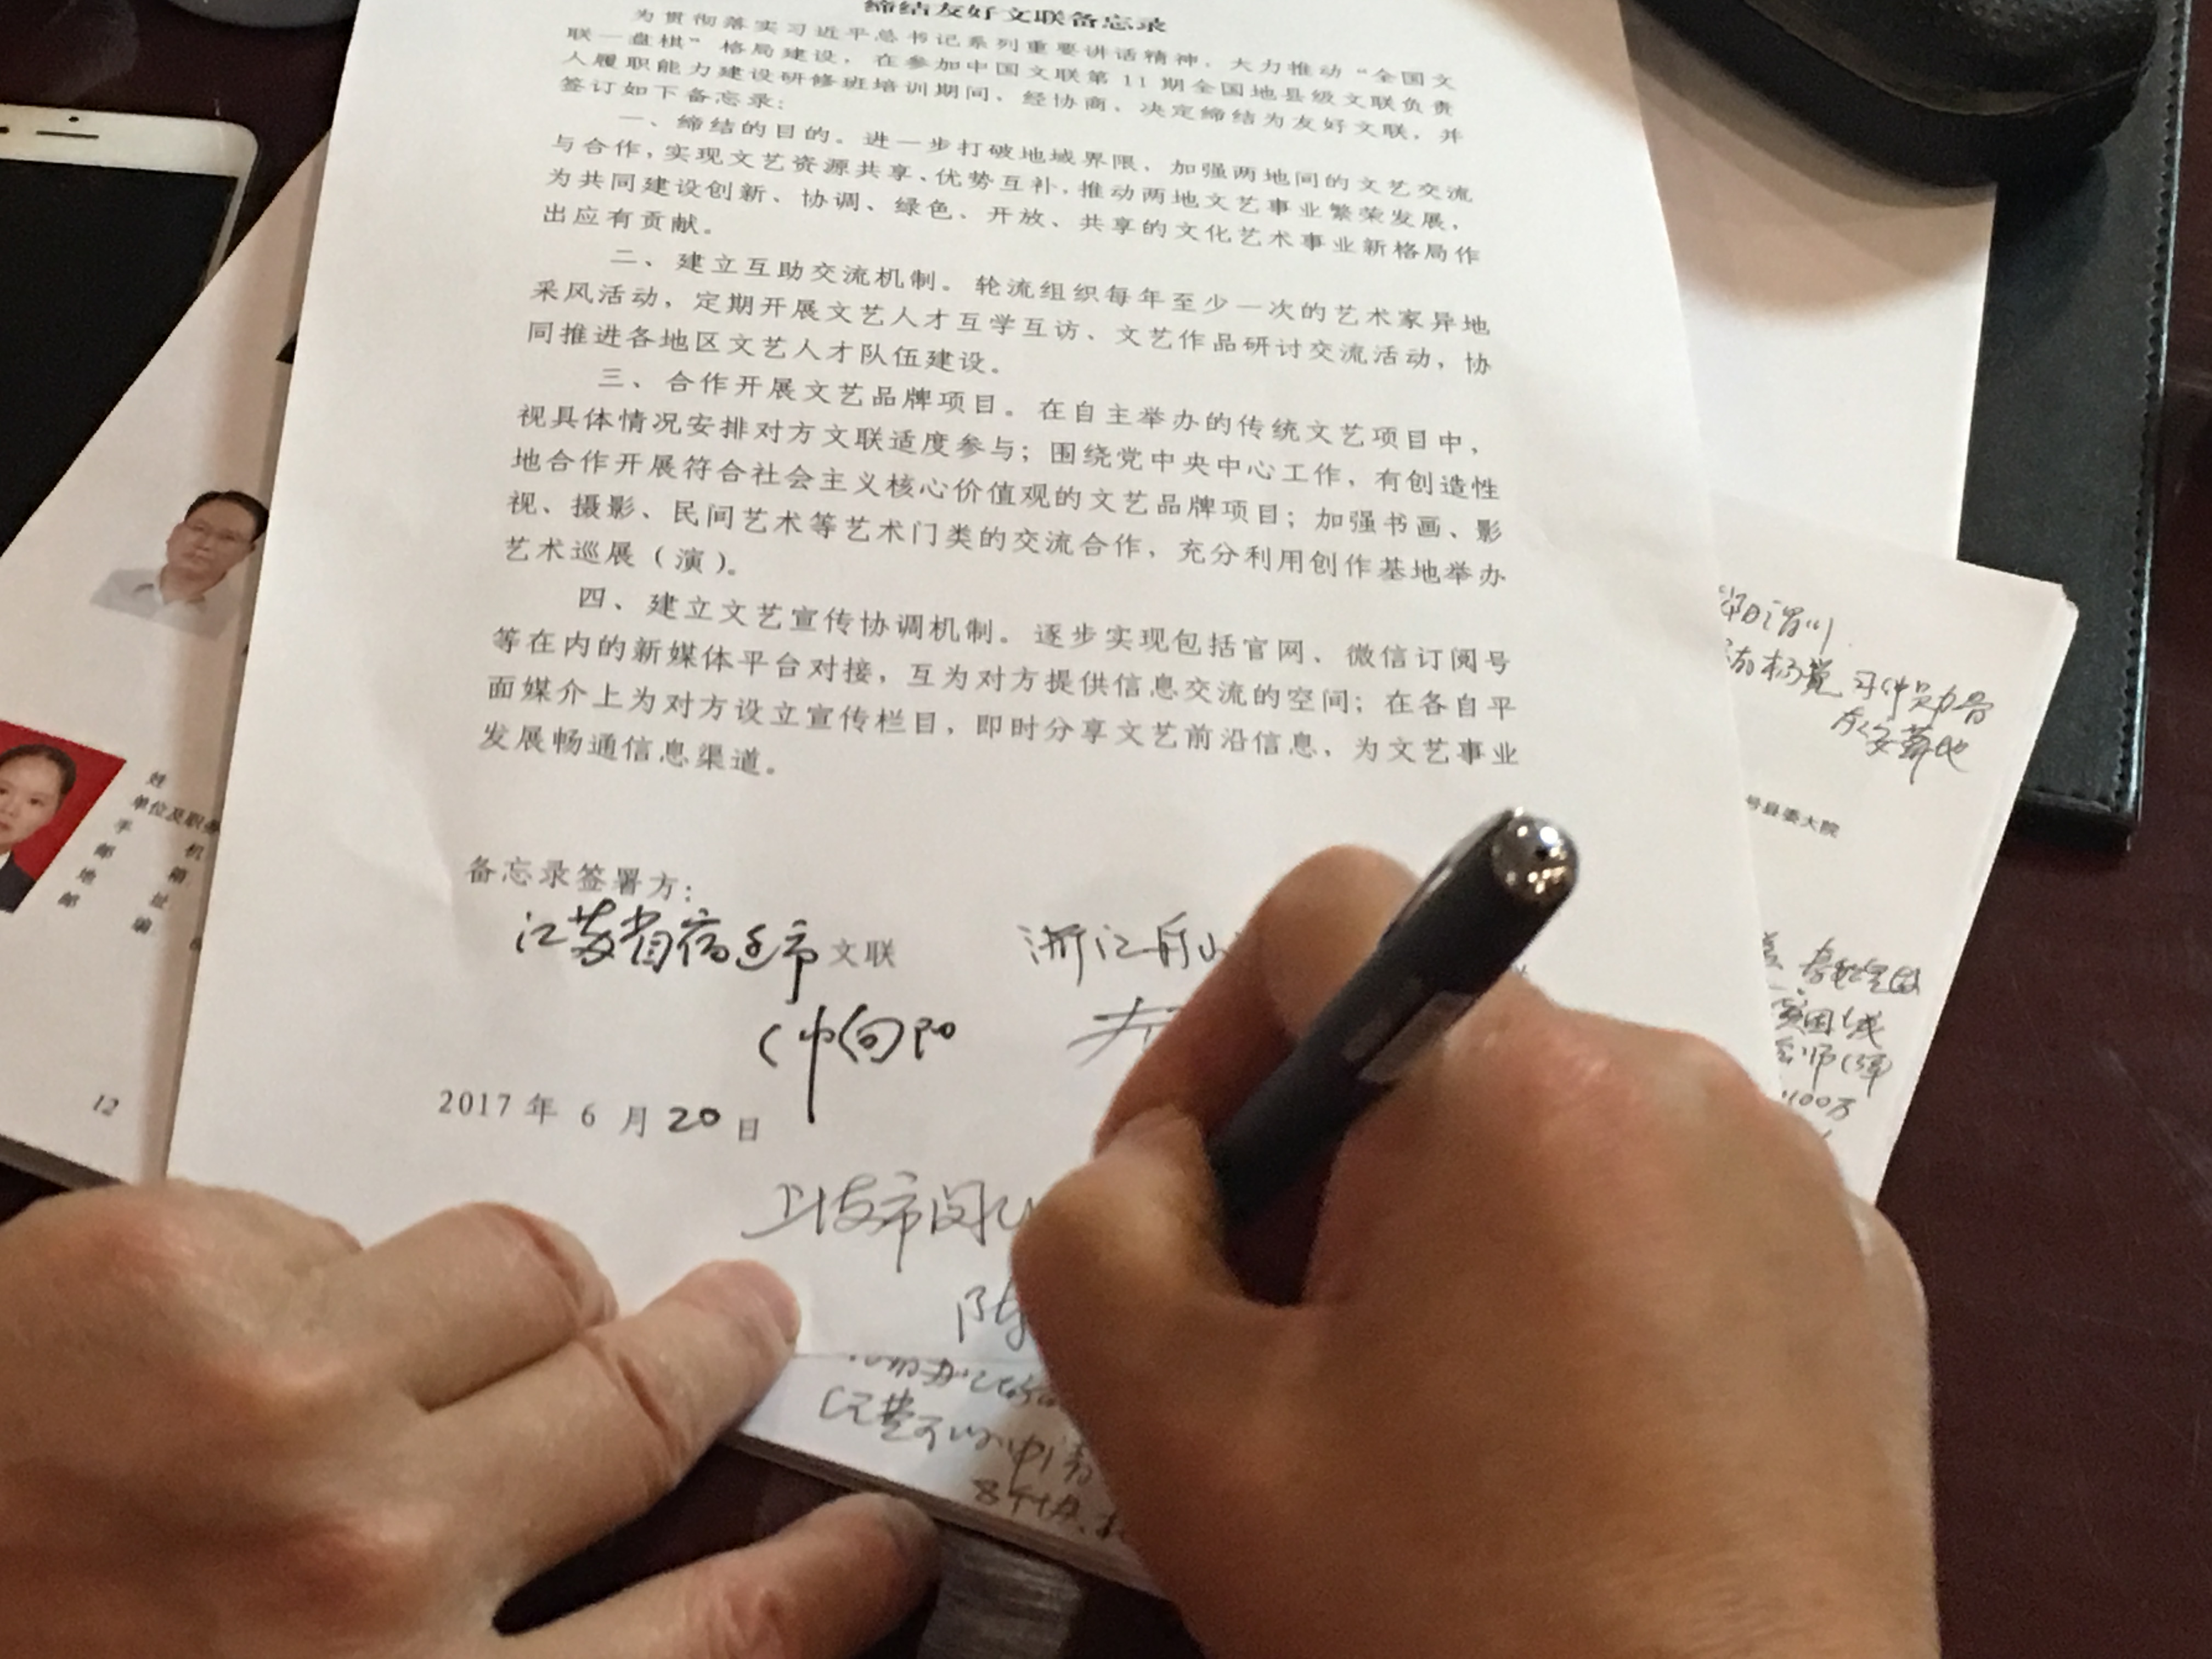 缔结友好文联备忘录
为贯彻落实习近平总书记系列重要讲话精神，大力推动“全国文
联一盘棋”格局建设，在参加中国文联第11期全国地县级文联负责
人履职能力建设研修班培训期间，经协商，决定缔结为友好文联，并
签订如下备忘录：
一、缔结的目的。进一步打破地域界限，加强两地间的文艺交流
与合作，实现文艺资源共享、优势互补，推动两地文艺事业繁荣发展，
为共同建设创新、协调、绿色、开放、共享的文化艺术事业新格局作
出应有贡献。
二、建立互助交流机制。轮流组织每年至少一次的艺术家异地
采风活动，定期开展文艺人才互学互访、文艺作品研讨交流活动，协
同推进各地区文艺人才队伍建设。
三、合作开展文艺品牌项目。在自主举办的传统文艺项目中，
视具体情况安排对方文联适度参与；围绕党中央中心工作，有创造性
地合作开展符合社会主义核心价值观的文艺品牌项目；加强书画、影
视、摄影、民间艺术等艺术门类的交流合作，充分利用创作基地举办
艺术巡展（演）。
四、建立文艺宣传协调机制。逐步实现包括官网、微信订阅号
等在内的新媒体平台对接，互为对方提供信息交流的空间；在各自平
面媒介上为对方设立宣传栏目，即时分享文艺前沿信息，为文艺事业
发展畅通信息渠道。
备忘录签署方：
江苏省宿迁市文联
浙江舟山
仲向阳
2017年6月20日
上海市闵
陈
姓
单位及职务
手机
邮箱
地址
邮编
12
号县委大院